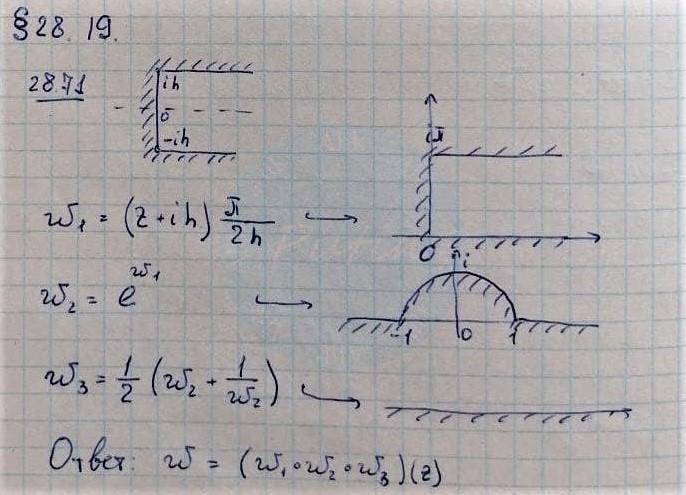 §28. 19.
28.71
ih
0
-ih
iπ
w₁ = (z + ih) π/2h
0
i
w₂ = e^w₁
-1 0 1
w₃ = 1/2 (w₂ + 1/w₂)
Ответ: w = (w₁∘w₂∘w₃)(z)